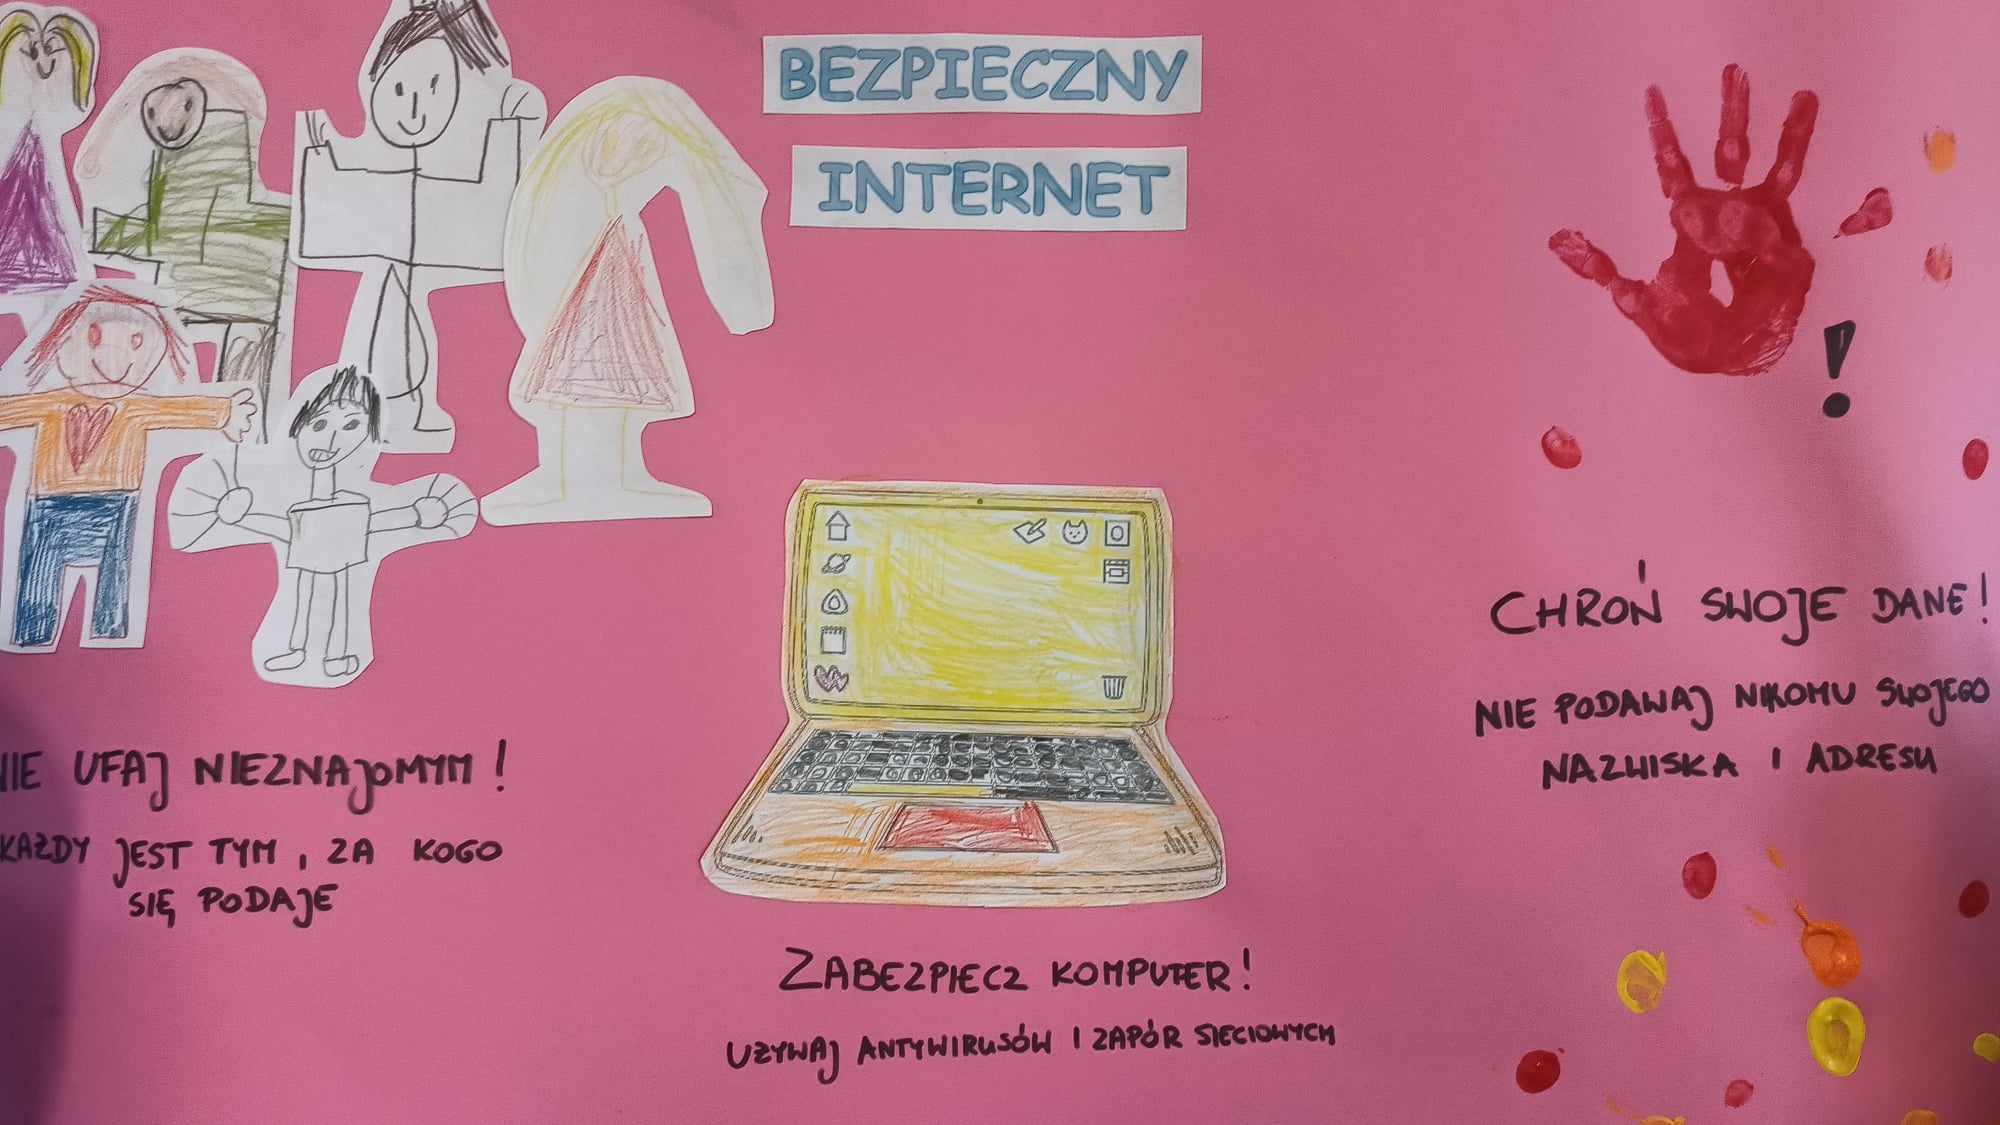 BEZPIECZNY
INTERNET
NIE UFAJ NIEZNAJOMYM!
KAŻDY JEST TYM, ZA KOGO
SIĘ PODAJE
ZABEZPIECZ KOMPUTER!
UZYWAJ ANTYWIRUSÓW I ZAPÓR SIECIOWYCH
!
CHROŃ SWOJE DANE!
NIE PODAWAJ NIKOMU SWOJEGO
NAZWISKA I ADRESU